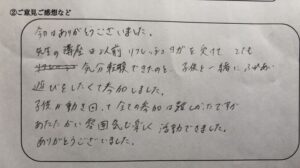 ②ご意見ご感想など
今日はありがとうございました。
先生の講座は以前リフレッシュヨガを受けて とても
気分転換できたのと 子供と一緒にふれあい
遊びをしたくて参加しました。
子供が動き回って全ての参加は難しかったですが
あたたかい雰囲気で楽しく活動できました。
ありがとうございました。